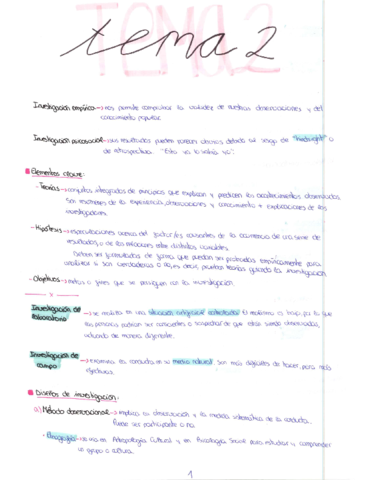 tema 2
Investigación empírica → nos permite comprobar la validez de nuestras observaciones y del
conocimiento popular.
Investigación psicosocial → sus resultados pueden parecer obvios debido al sesgo de "hindsight" o
de retrospectiva. "Esto ya lo sabía yo".
Elementos clave:
- Teorías → conjuntos integrados de principios que explican y predicen los acontecimientos observados.
Son resúmenes de la experiencia, observaciones y conocimiento + explicaciones de los
investigadores.
- Hipótesis → especulaciones acerca del factor/es causantes de la ocurrencia de una serie de
resultados, o de las relaciones entre distintas variables.
Deben ser formuladas de forma que puedan ser probadas empíricamente para
establecer si son verdaderas o no, es decir, prueban teorías guiando la investigación
- Objetivos → metas o fines que se persiguen con la investigación.
Investigación de
laboratorio → se realiza en una situación artificial controlada. El realismo es bajo, por lo que
las personas podrían ser conscientes o sospechar de que están siendo observadas,
actuando de manera diferente.
Investigación de
campo → examina la conducta en su medio natural. Son más difíciles de hacer, pero más
efectivas.
Diseños de investigación:
a) Método observacional → implica la observación y la medida sistemática de la conducta.
Puede ser participante o no.
- Etnografía: se usa en Antropología Cultural y en Psicología Social para estudiar y comprender
un grupo o cultura.
1